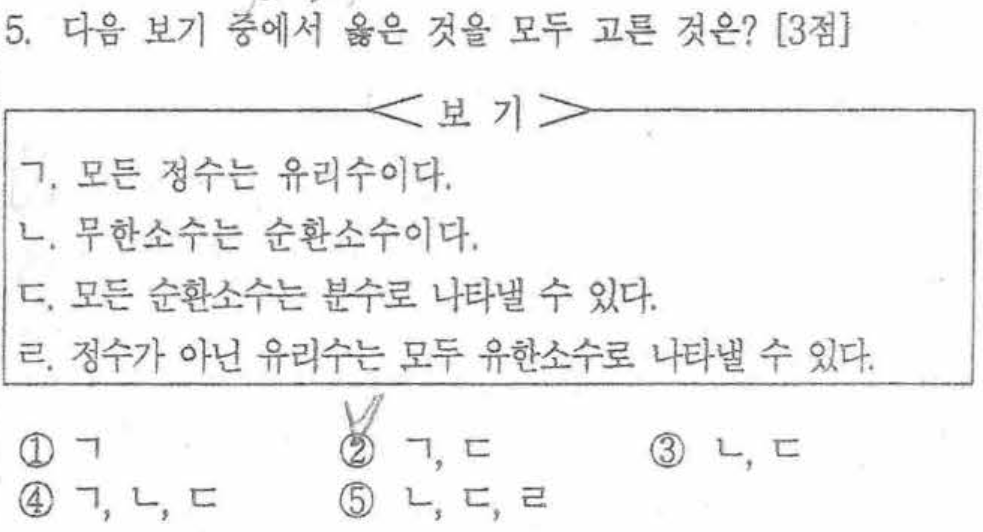 5. 다음 보기 중에서 옳은 것을 모두 고른 것은? [3점]
< 보 기 >
ㄱ. 모든 정수는 유리수이다.
ㄴ. 무한소수는 순환소수이다.
ㄷ. 모든 순환소수는 분수로 나타낼 수 있다.
ㄹ. 정수가 아닌 유리수는 모두 유한소수로 나타낼 수 있다.
① ㄱ ② ㄱ, ㄷ ③ ㄴ, ㄷ
④ ㄱ, ㄴ, ㄷ ⑤ ㄴ, ㄷ, ㄹ